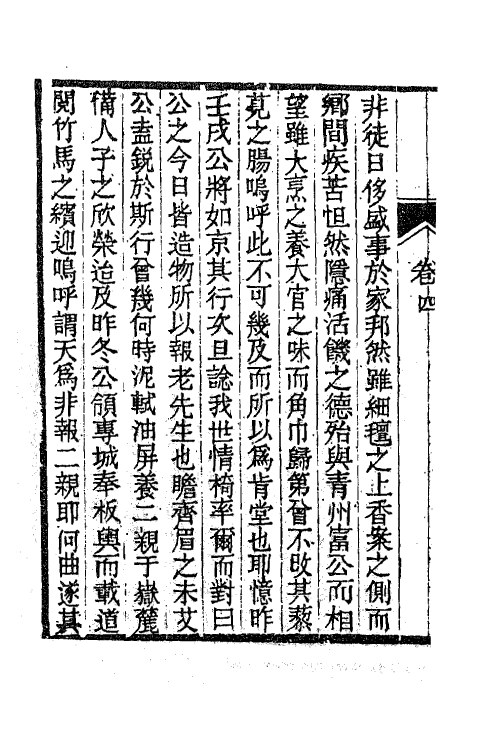 卷四
非徒日侈盛事於家邦然雖細氊之上香案之側而
鄕間疾苦怛然隱痛活饑之德殆與青州富公而相
望雖大烹之養大官之味而角巾歸第曾不改其藜
莧之腸嗚呼此不可幾及而所以爲肯堂也耶憶昨
壬戌公將如京其行次旦諗我世情椅率爾而對曰
公之今日皆造物所以報老先生也瞻齊眉之未艾
公盍銳於斯行曾幾何時泥軾油屏養二親于嶽麓
備人子之欣榮迨及昨冬公領專城奉板輿而載道
閱竹馬之繽迎嗚呼謂天爲非報二親耶何曲遂其